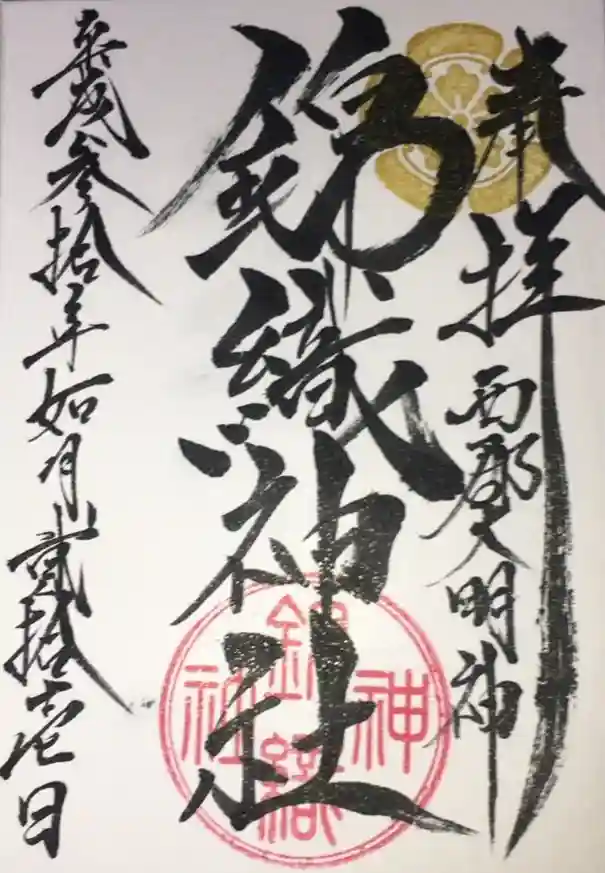 奉拝
西郡大明神
錦織神社
錦織神社
平成参拾年如月貳拾壱日